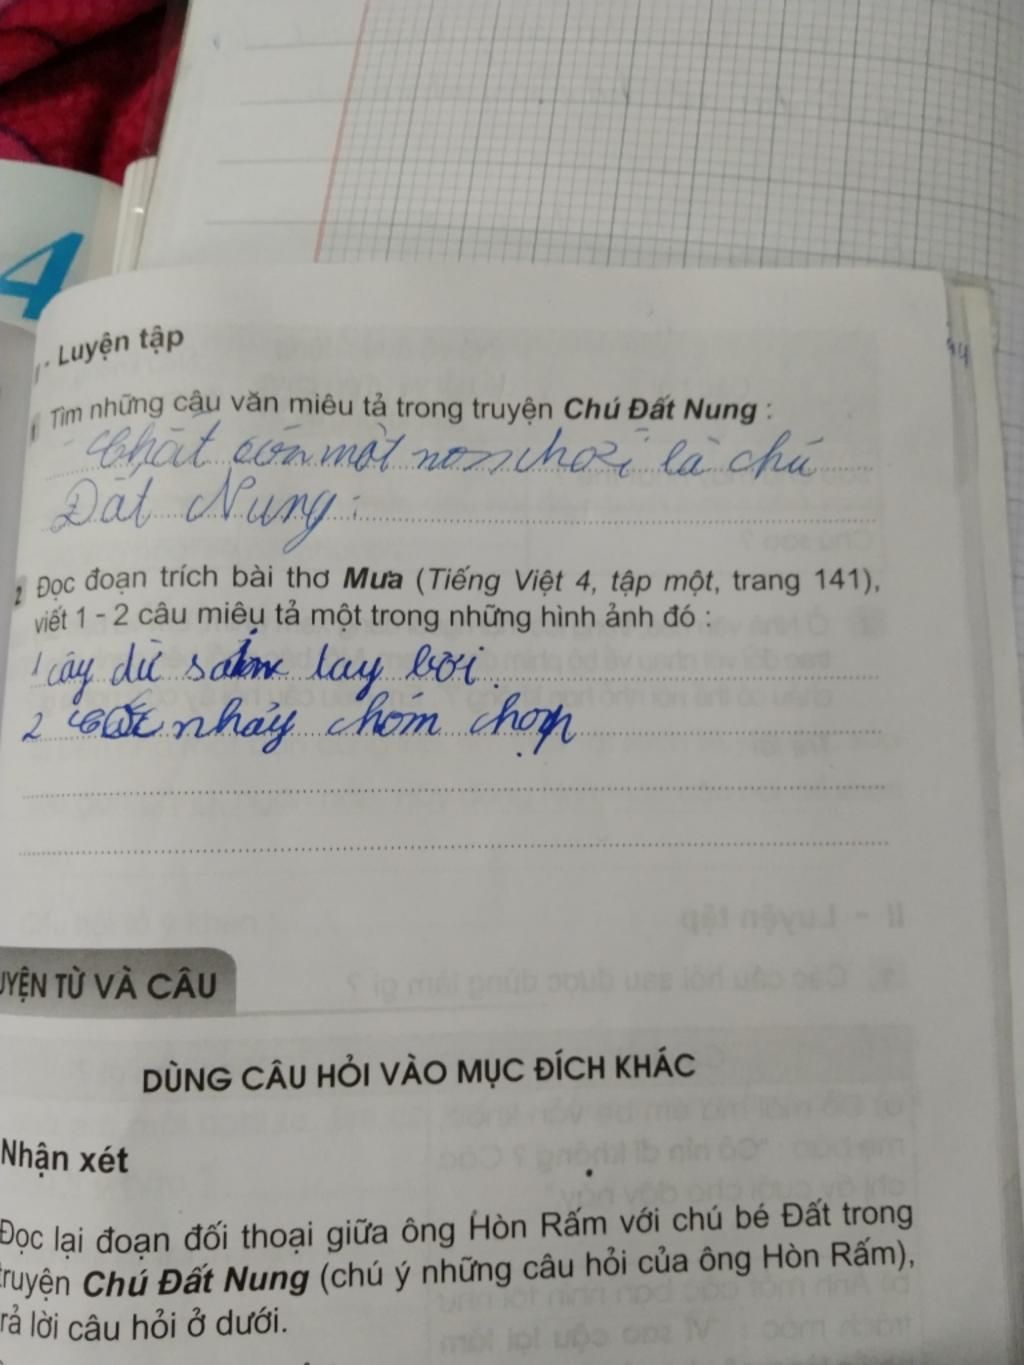 4
- Luyện tập
1 Tìm những câu văn miêu tả trong truyện Chú Đất Nung :
là chú
Đất Nung:
2 Đọc đoạn trích bài thơ Mưa (Tiếng Việt 4, tập một, trang 141),
viết 1 - 2 câu miêu tả một trong những hình ảnh đó :
1 cây dừ tay bơi.
2 nhảy chồm chồm
UYỆN TỪ VÀ CÂU
DÙNG CÂU HỎI VÀO MỤC ĐÍCH KHÁC
Nhận xét
Đọc lại đoạn đối thoại giữa ông Hòn Rấm với chú bé Đất trong
truyện Chú Đất Nung (chú ý những câu hỏi của ông Hòn Rấm),
rả lời câu hỏi ở dưới.